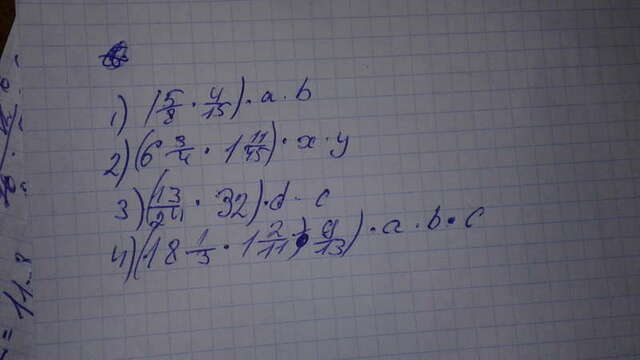 1) (5/8 · 4/15) · a · b
2) (6 3/4 · 1 11/45) · x · y
3) (13/24 · 32) · d · c
4) (18 1/3 · 1 2/11 · 9/13) · a · b · c
= 11